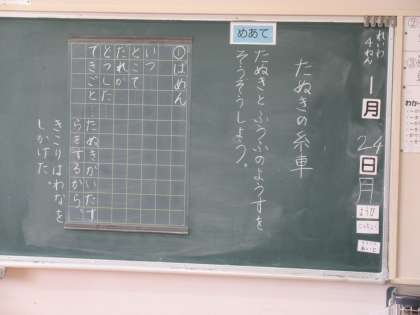 れいわ
4ねん
1月24日月
ようび
たぬきの糸車
めあて
たぬきとふうふのようすを
そうぞうしよう。
①ばめん
いつ
どこで
だれが
どうした
できごと…たぬきがいたず
らをするから、
きこりはわなを
しかけた。